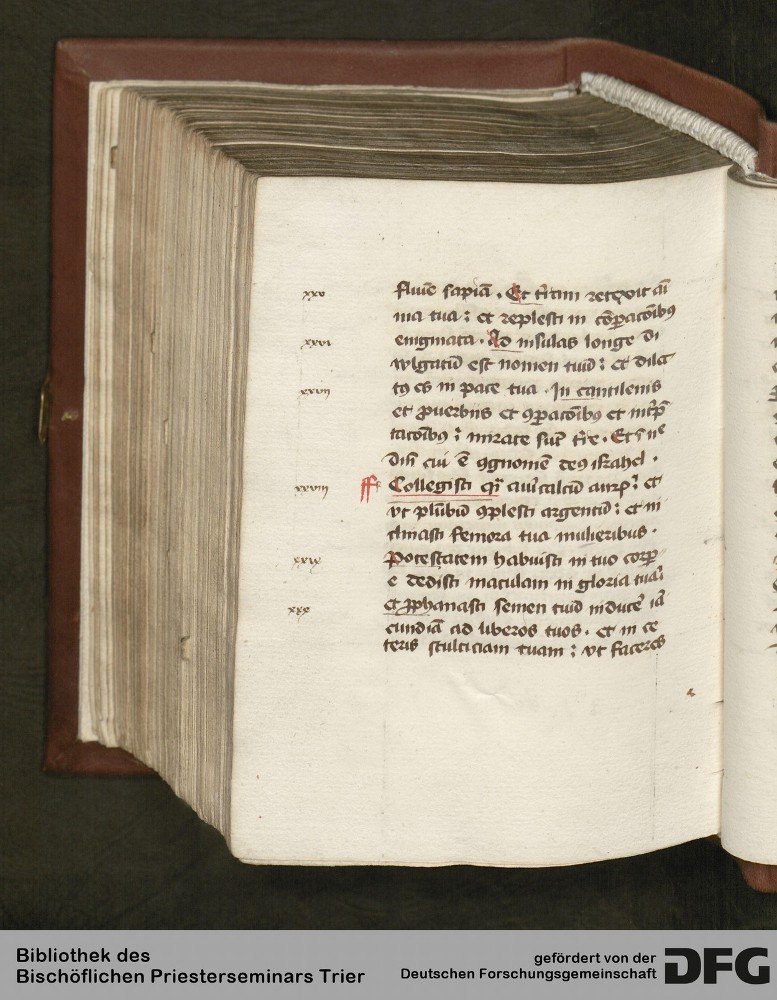 xxv fluuē sapiā . Et t̄rām retexit aī
ma tua : et replesti in cōparacōibꝰ
xxvi enigmata . Ad insulas longe di
wlgatū est nomen tuū : et dilc̄
xxvii tꝰ es in pace tua . In cantilenis
et ꝓuerbiis et ꝯparacōibꝰ et int̄p̄
tacōibꝰ : mirate sūt t̄re . Et ī nōīe
dn̄i cui ē ꝯgnomē deꝰ israhel .
xxviii Collegisti q̄i auricalcū aurū : et
vt plūbū ꝯplesti argentū : et in
clinasti femora tua mulieribus .
xxix Potestatem habuisti in tuo corpor
e dedisti maculam in gloria tua :
xxx et ꝓphanasti semen tuū inducē ira
cundiā ad liberos tuos . et in ce
teris stulticiam tuam : vt faceres
Bibliothek des
Bischöflichen Priesterseminars Trier
gefördert von der
Deutschen Forschungsgemeinschaft
DFG